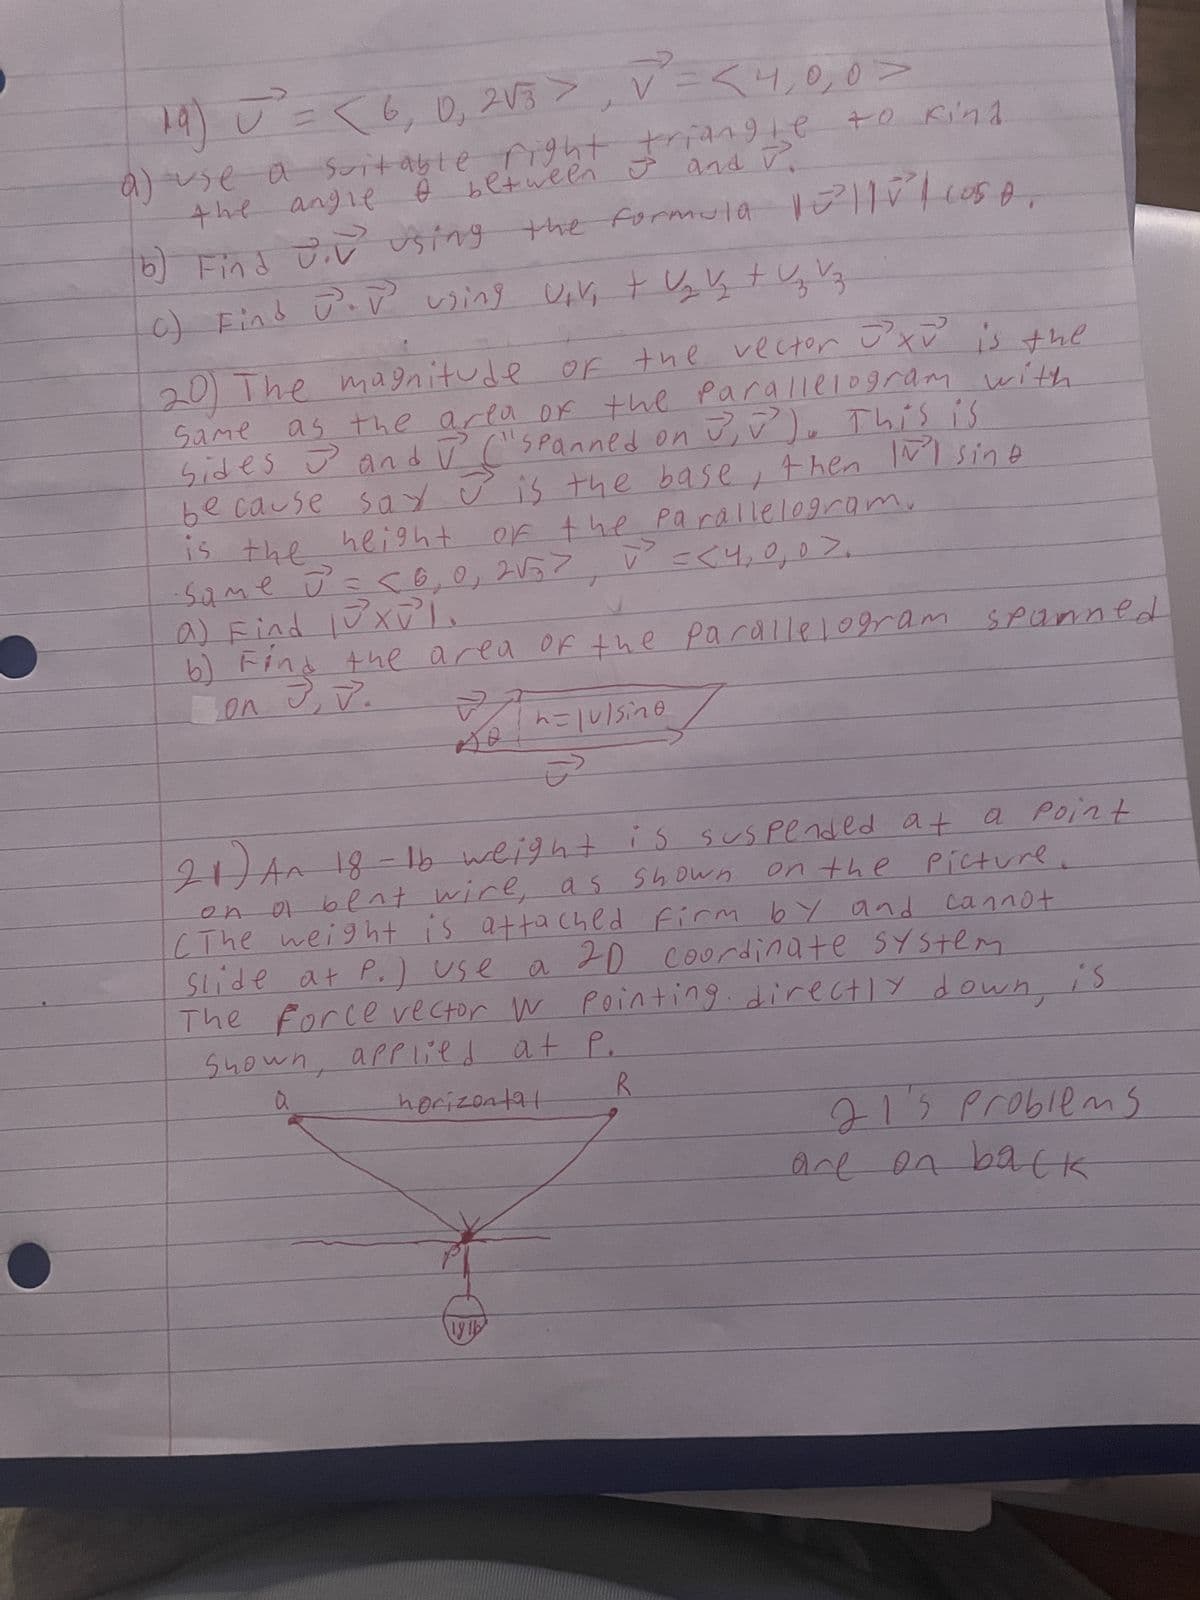 19) u⃗ = <6, 0, 2√3>, v⃗ = <4,0,0>
a) use a suitable right triangle to find
the angle θ between u⃗ and v⃗.
b) Find u⃗·v⃗ using the formula |u⃗||v⃗|cos θ.
c) Find u⃗·v⃗ using U₁V₁ + U₂V₂ + U₃V₃
20) The magnitude of the vector u⃗×v⃗ is the
same as the area of the parallelogram with
sides u⃗ and v⃗ ("spanned on u⃗, v⃗). This is
because say u⃗ is the base, then |v⃗| sin θ
is the height of the parallelogram.
same u⃗ = <6, 0, 2√3>, v⃗ = <4,0,0>.
a) Find |u⃗×v⃗|.
b) Find the area of the parallelogram spanned
on u⃗, v⃗.
v⃗ h=|v|sinθ
θ
u⃗
21) An 18-lb weight is suspended at a point
on a bent wire, as shown on the picture.
(The weight is attached firm by and cannot
slide at P.) use a 2D coordinate system
The force vector W pointing directly down, is
shown, applied at P.
Q horizontal R
21's problems
are on back
P
18 lb